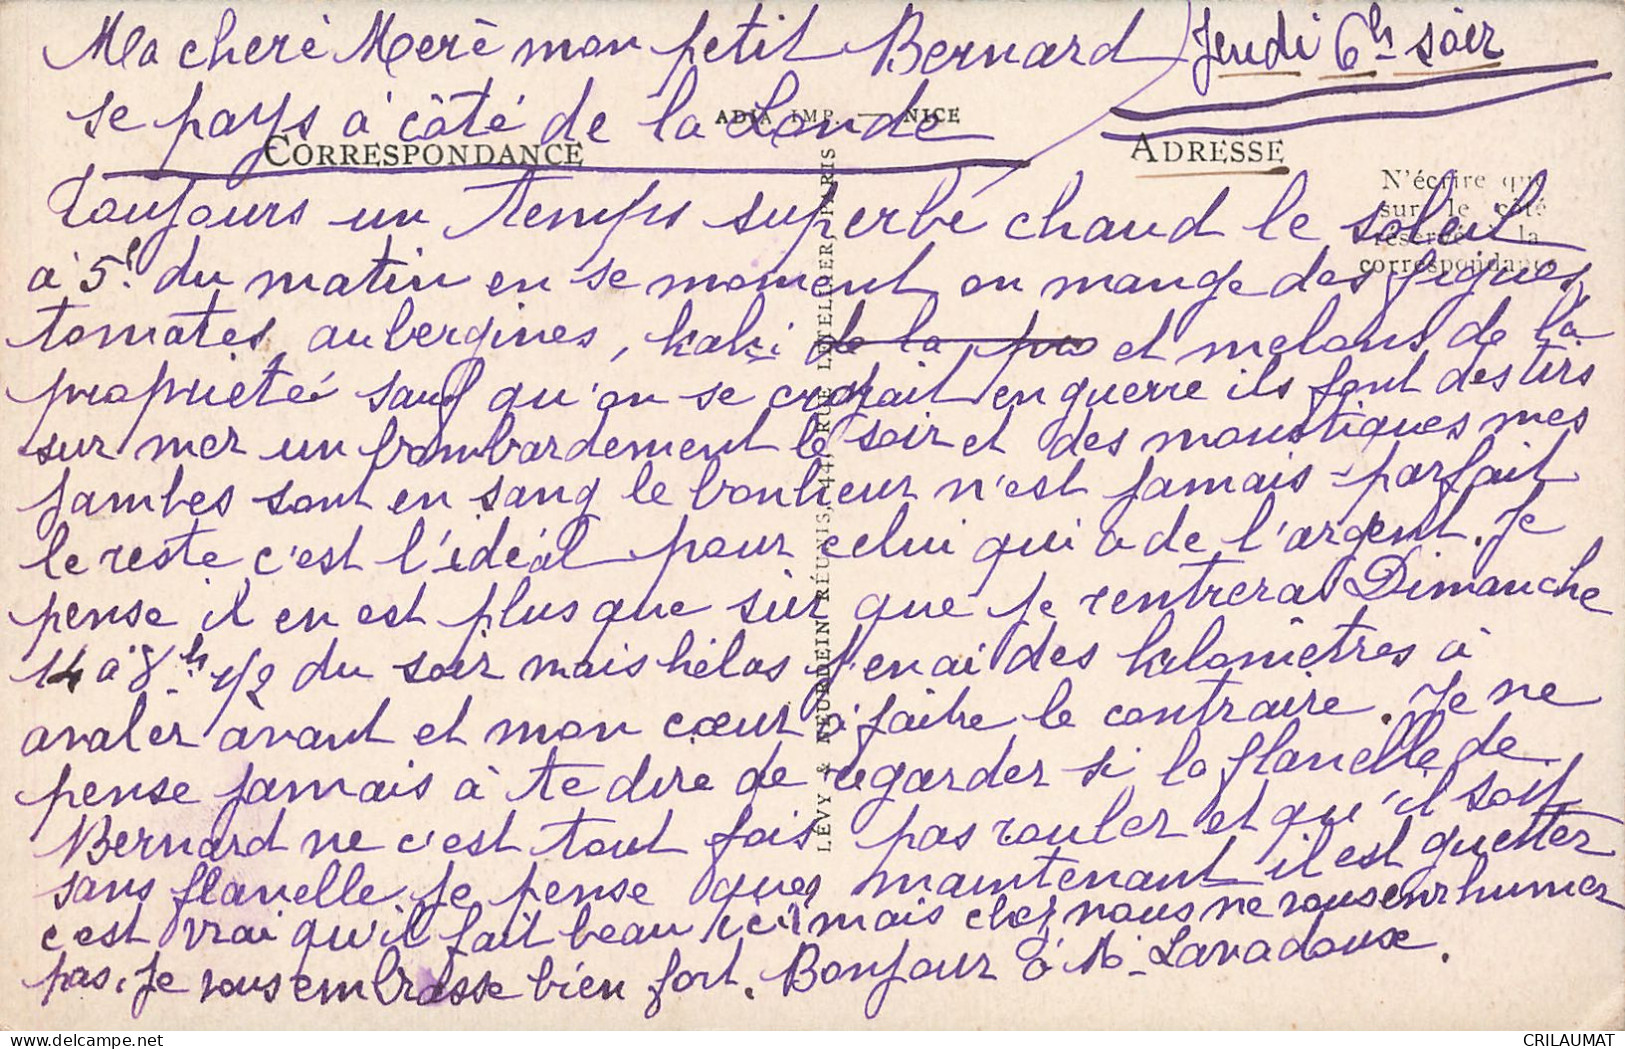 Ma cheré Meré mon petit Bernard Jeudi 6h soir
se pays à côté de la Londe
ADIA IMP. — NICE
CORRESPONDANCE
ADRESSE
N'écrire que
sur le côté
réservé à la
correspondance
Toujours un temps superbe chaud le soleil
à 5h du matin en se moment on mange des figues,
tomates, aubergines, kaki de la pro et melons de la
proprieté sauf qu'on se croyait en guerre ils font des tirs
sur mer un bombardement le soir et des moustiques mes
jambes sont en sang le bonheur n'est jamais parfait
le reste c'est l'idéal pour celui qui a de l'argent. Je
pense il en est plus que sûr que je rentrerai Dimanche
14 à 8h 1/2 du soir mais hélas j'en ai des kilomètres à
avaler avant et mon cœur à faire le contraire. Je ne
pense jamais à te dire de regarder si la flanelle de
Bernard ne c'est tout fois pas rouler et qu'il soit
sans flanelle. Je pense que maintenant il est guetter
c'est vrai qu'il fait beau ici mais chez nous ne vous enrhumer
pas. Je vous embrasse bien fort. Bonjour à M. Lavadoux.
LÉVY & NEURDEIN RÉUNIS, 44, RUE LETELLIER, PARIS
CRILAUMAT